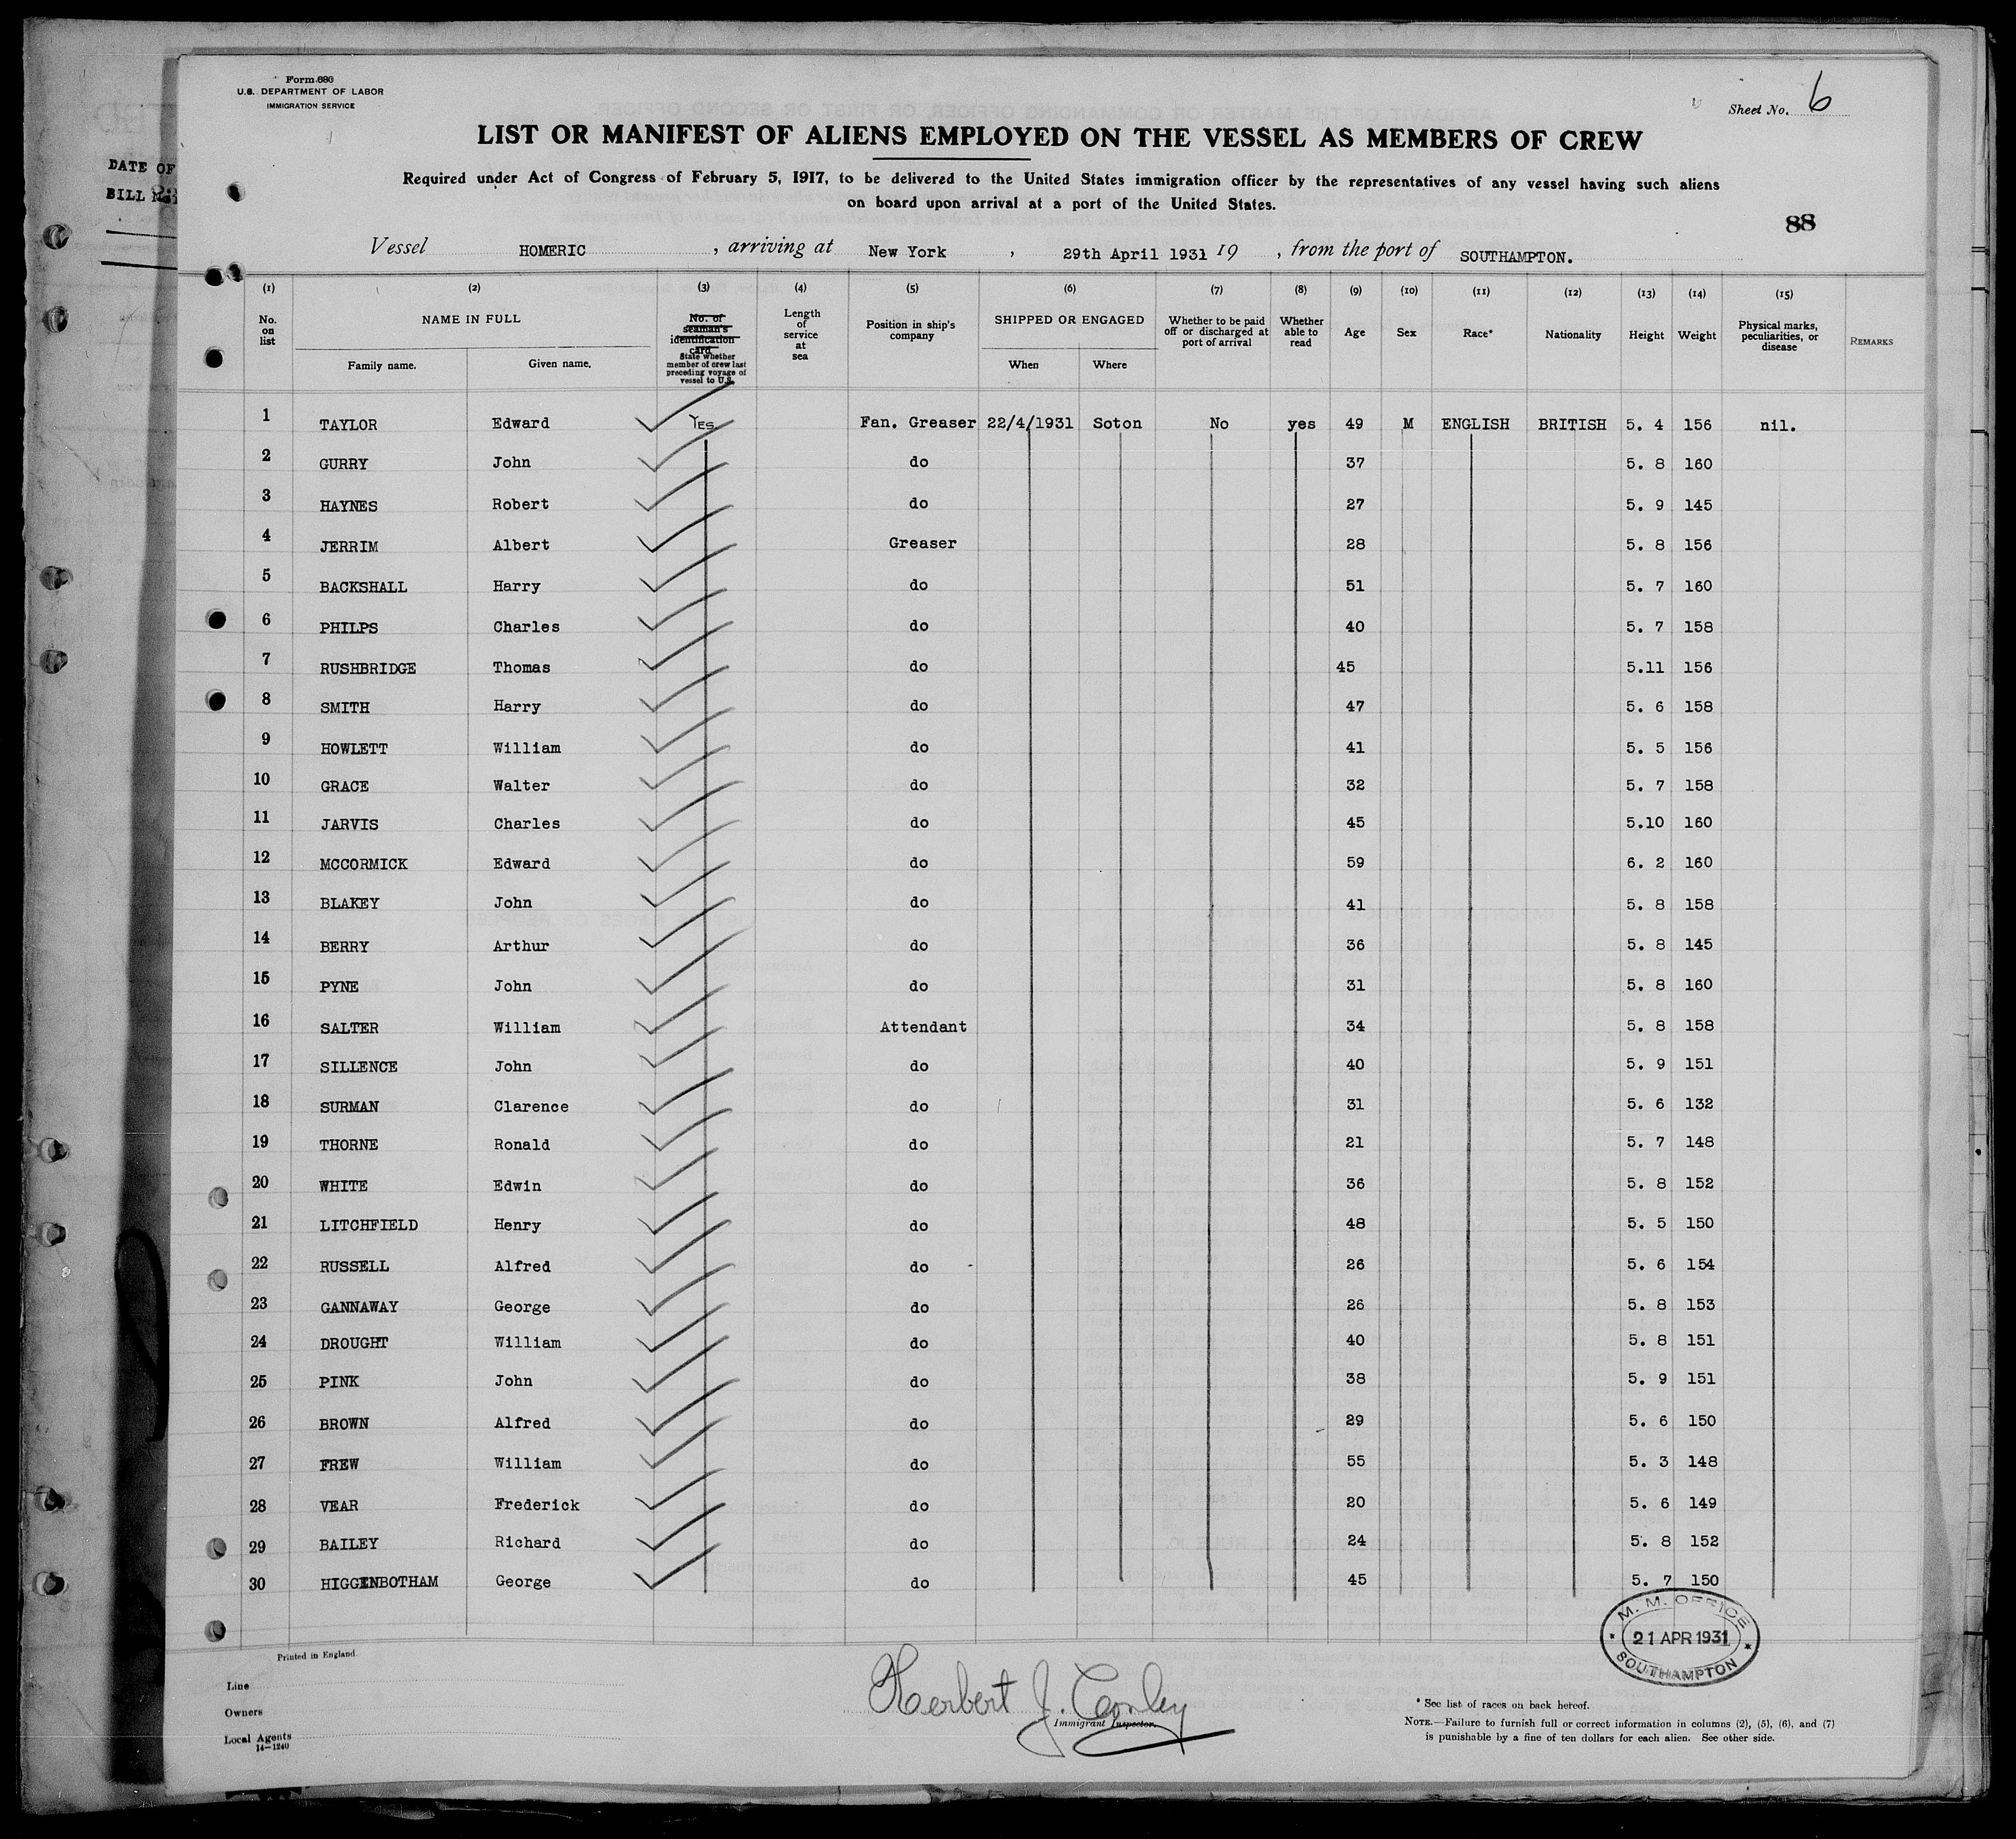 Form 680
U.S. DEPARTMENT OF LABOR
IMMIGRATION SERVICE
Sheet No. 6
LIST OR MANIFEST OF ALIENS EMPLOYED ON THE VESSEL AS MEMBERS OF CREW
Required under Act of Congress of February 5, 1917, to be delivered to the United States immigration officer by the representatives of any vessel having such aliens
on board upon arrival at a port of the United States.
DATE OF
BILL
88
Vessel HOMERIC, arriving at New York, 29th April 1931 19, from the port of SOUTHAMPTON.
(1) (2) (3) (4) (5) (6) (7) (8) (9) (10) (11) (12) (13) (14) (15)
No. on list NAME IN FULL Family name. Given name. No. of seaman's identification card State whether member of crew last preceding voyage of vessel to U.S. Length of service at sea Position in ship's company SHIPPED OR ENGAGED When Where Whether to be paid off or discharged at port of arrival Whether able to read Age Sex Race* Nationality Height Weight Physical marks, peculiarities, or disease REMARKS
1 TAYLOR Edward Yes Fan. Greaser 22/4/1931 Soton No yes 49 M ENGLISH BRITISH 5. 4 156 nil.
2 GURRY John do 37 5. 8 160
3 HAYNES Robert do 27 5. 9 145
4 JERRIM Albert Greaser 28 5. 8 156
5 BACKSHALL Harry do 51 5. 7 160
6 PHILPS Charles do 40 5. 7 158
7 RUSHBRIDGE Thomas do 45 5.11 156
8 SMITH Harry do 47 5. 6 158
9 HOWLETT William do 41 5. 5 156
10 GRACE Walter do 32 5. 7 158
11 JARVIS Charles do 45 5.10 160
12 MCCORMICK Edward do 59 6. 2 160
13 BLAKEY John do 41 5. 8 158
14 BERRY Arthur do 36 5. 8 145
15 PYNE John do 31 5. 8 160
16 SALTER William Attendant 34 5. 8 158
17 SILLENCE John do 40 5. 9 151
18 SURMAN Clarence do 31 5. 6 132
19 THORNE Ronald do 21 5. 7 148
20 WHITE Edwin do 36 5. 8 152
21 LITCHFIELD Henry do 48 5. 5 150
22 RUSSELL Alfred do 26 5. 6 154
23 GANNAWAY George do 26 5. 8 153
24 DROUGHT William do 40 5. 8 151
25 PINK John do 38 5. 9 151
26 BROWN Alfred do 29 5. 6 150
27 FREW William do 55 5. 3 148
28 VEAR Frederick do 20 5. 6 149
29 BAILEY Richard do 24 5. 8 152
30 HIGGENBOTHAM George do 45 5. 7 150
M. M. OFFICE
21 APR 1931
SOUTHAMPTON
Printed in England.
Line
Owners
Local Agents
14—1240
Herbert J. Conley
Immigrant Inspector.
* See list of races on back hereof.
NOTE.—Failure to furnish full or correct information in columns (2), (5), (6), and (7)
is punishable by a fine of ten dollars for each alien. See other side.